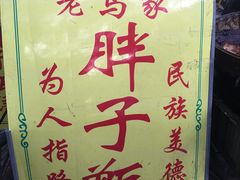 老马家
胖子
为人指路
民族美德